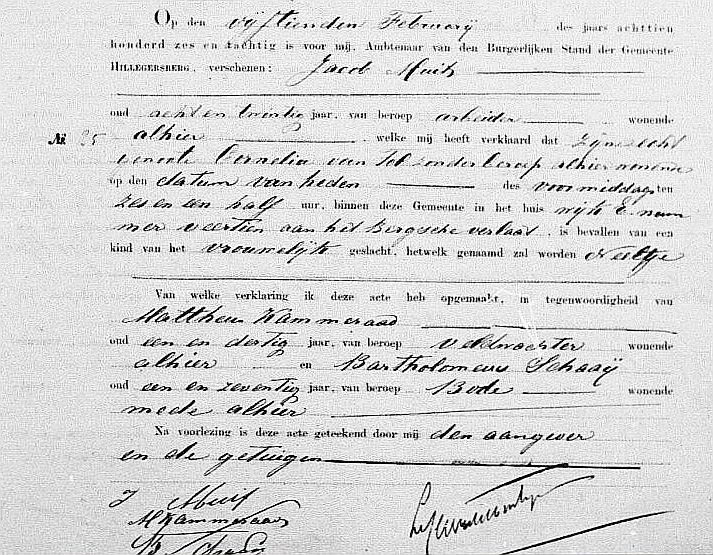 Op den vijftienden Februarij des jaars achttien
honderd zes en tachtig is voor mij, Ambtenaar van den Burgerlijken Stand der Gemeente
HILLEGERSBERG, verschenen: Jacob Muit
oud acht en twintig jaar, van beroep arbeider wonende
№ 25 alhier, welke mij heeft verklaard dat zijne echt
genoote Cornelia van Tol zonder beroep alhier wonende
op den datum van heden des voormiddags ten
zes en een half uur, binnen deze Gemeente in het huis wijk E num
mer veertien aan het Bergsche verlaat, is bevallen van een
kind van het vrouwelijk geslacht, hetwelk genaamd zal worden Neeltje
Van welke verklaring ik deze acte heb opgemaakt, in tegenwoordigheid van
Mattheus Kammeraad
oud een en dertig jaar, van beroep veldwachter wonende
alhier en Bartholomeus Schaaij
oud een en zeventig jaar, van beroep Bode wonende
mede alhier
Na voorlezing is deze acte geteekend door mij den aangever
en de getuigen
J Muit
M Kammeraad